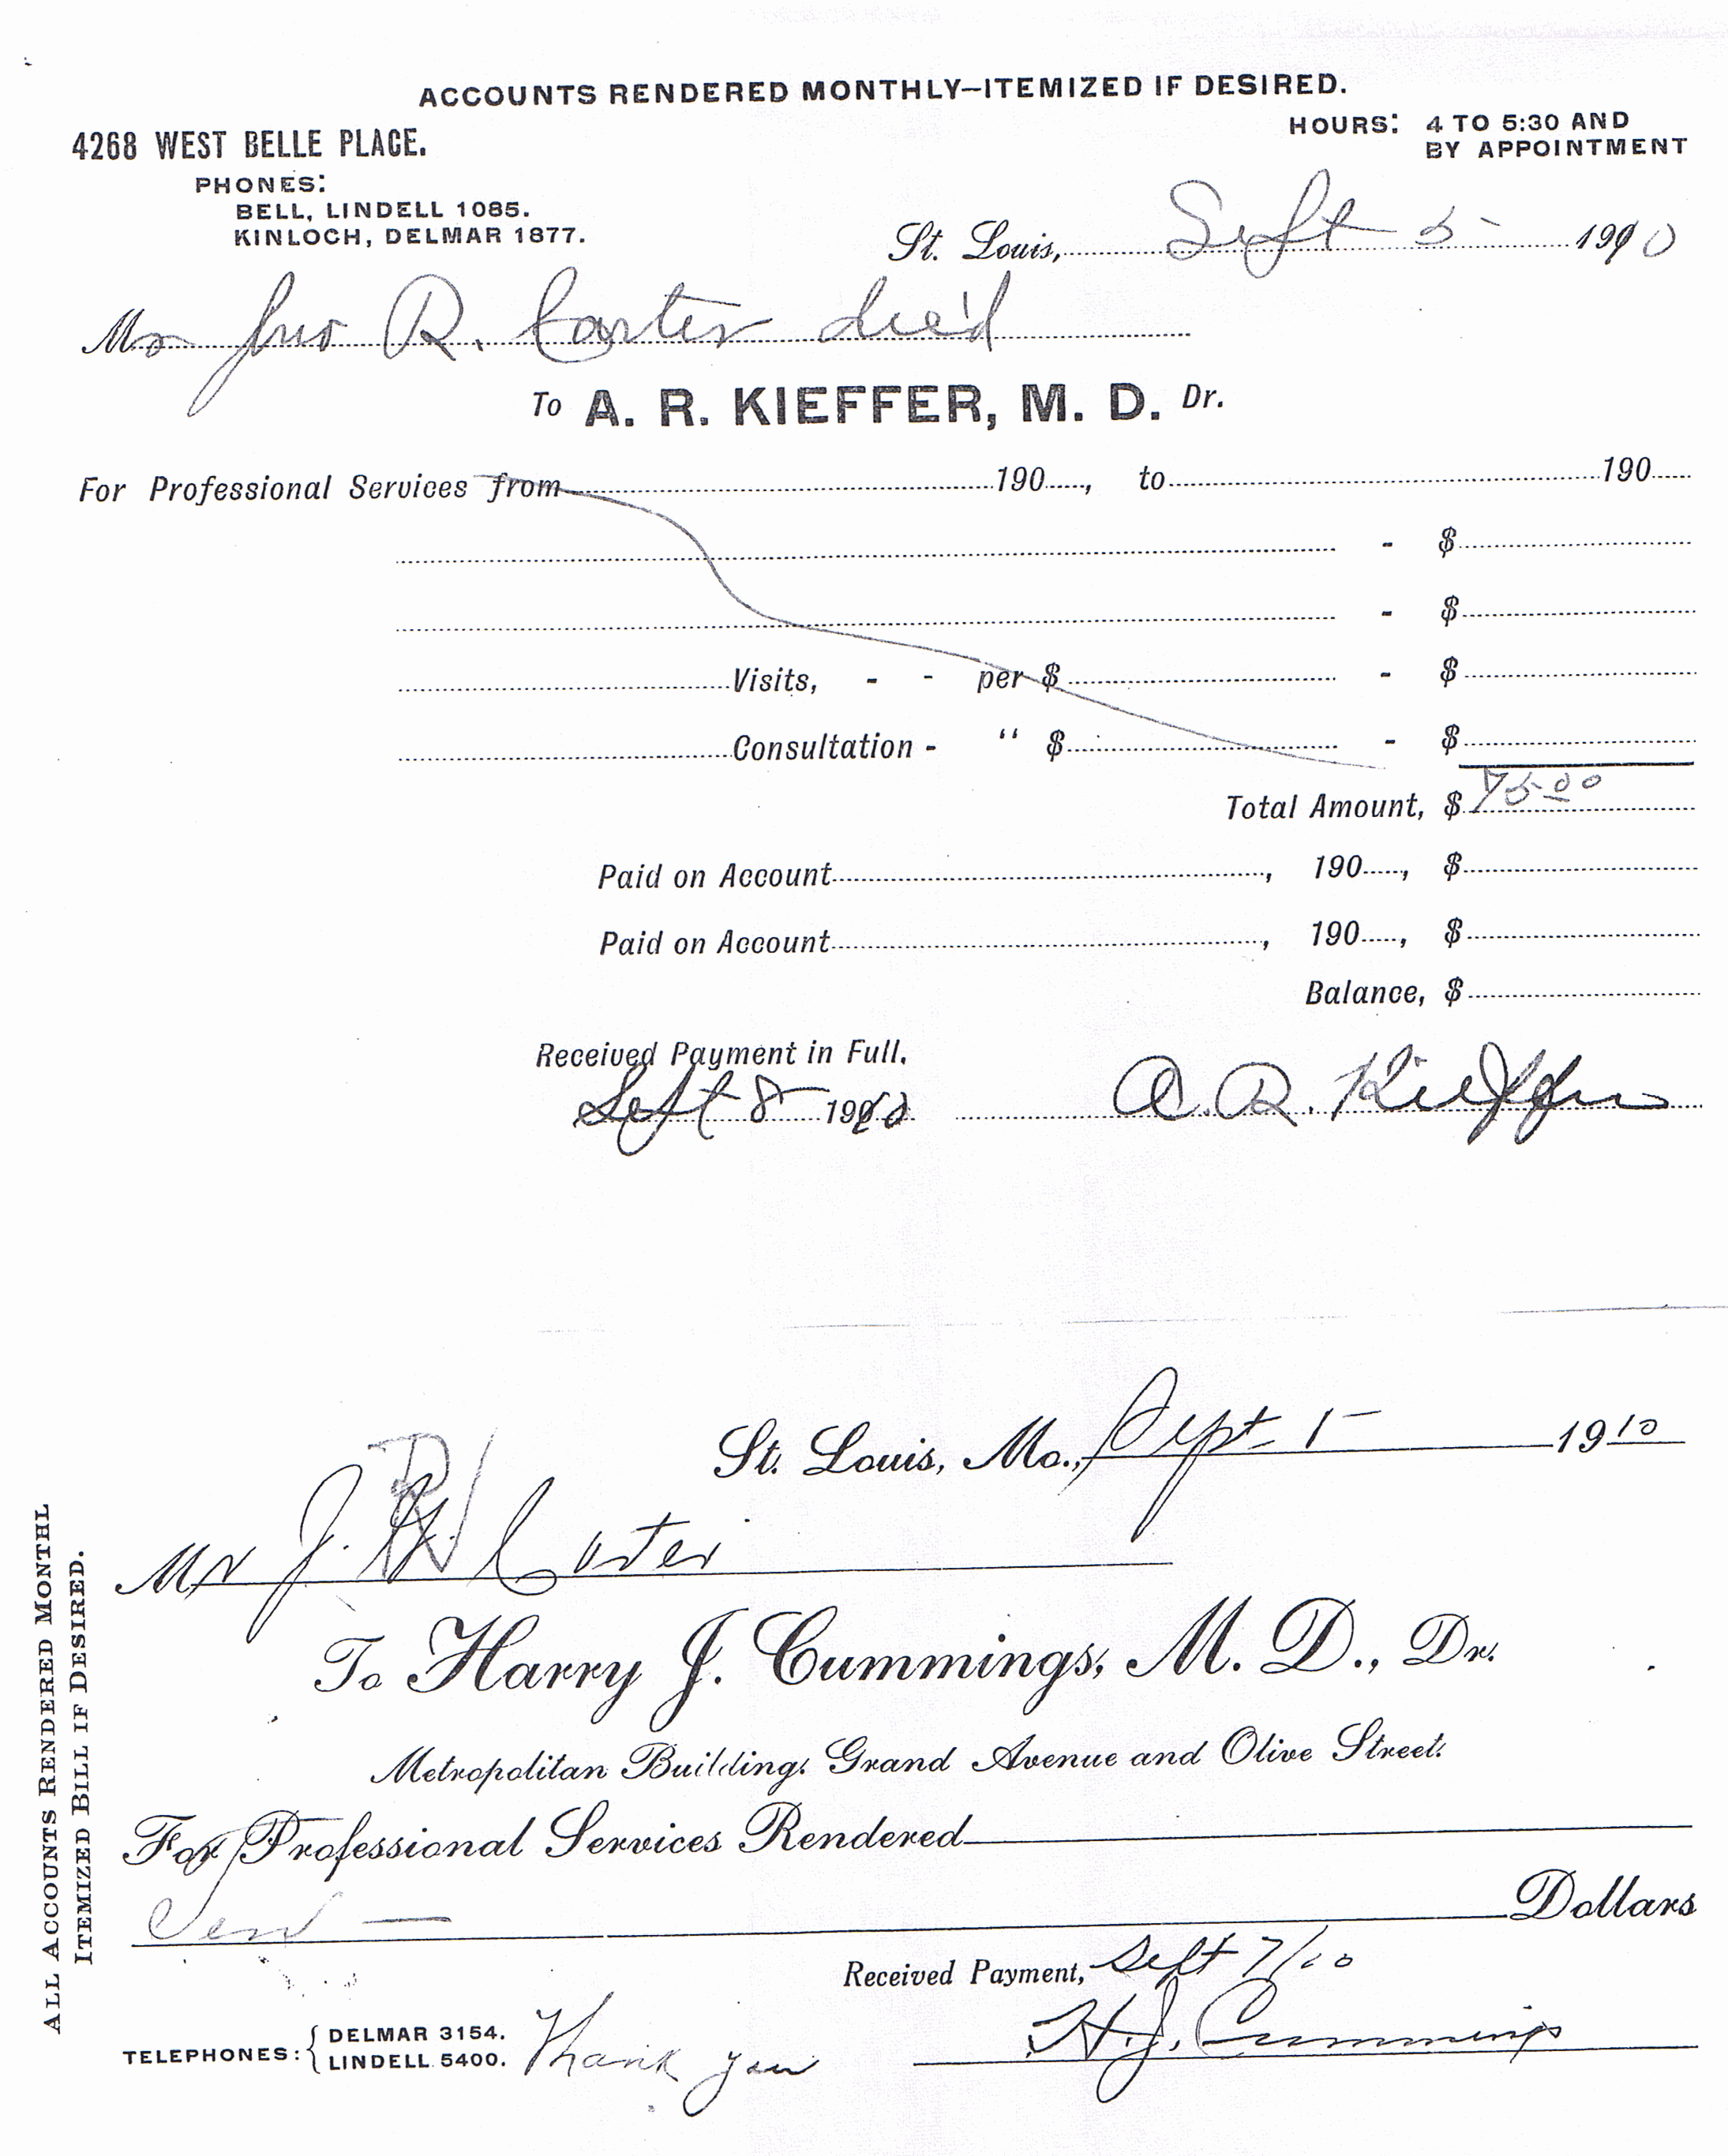 ACCOUNTS RENDERED MONTHLY—ITEMIZED IF DESIRED.
4268 WEST BELLE PLACE.
HOURS: 4 TO 5:30 AND
BY APPOINTMENT
PHONES:
BELL, LINDELL 1085.
KINLOCH, DELMAR 1877.
St. Louis, Sept 5 - 1910
Mr Jno R. Carter dec'd
To A. R. KIEFFER, M. D. Dr.
For Professional Services from 190 , to 190
- $
- $
Visits, - - per $ - $
Consultation - “ $ - $
Total Amount, $ 75.00
Paid on Account , 190 , $
Paid on Account , 190 , $
Balance, $
Received Payment in Full.
Sept 8 1910 A. R. Kieffer
St. Louis, Mo., Sept 1 - 1910
Mr J. R Carter
To Harry J. Cummings, M. D., Dr.
Metropolitan Building. Grand Avenue and Olive Street.
For Professional Services Rendered
Ten — Dollars
Received Payment, Sept 7/10
TELEPHONES: { DELMAR 3154.
LINDELL 5400.
Thank you
H. J. Cummings
ALL ACCOUNTS RENDERED MONTHL
ITEMIZED BILL IF DESIRED.